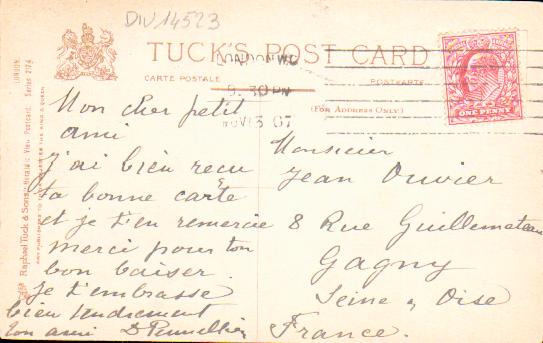 DIV 14523
TUCK'S POST CARD
CARTE POSTALE
POSTKARTE
(FOR ADDRESS ONLY)
LONDON W.C
9.30 PM
NOV 13 07
ONE PENNY
Raphael Tuck & Sons' Heraldic View Postcard. Series 2174
LONDON.
Mon cher petit
ami
J'ai bien reçu
ta bonne carte
et je t'en remercie
merci pour ton
bon baiser.
Je t'embrasse
bien tendrement
ton ami
Monsieur
Jean Ouvier
8 Rue Guillemeteau
Gagny
Seine & Oise
France.